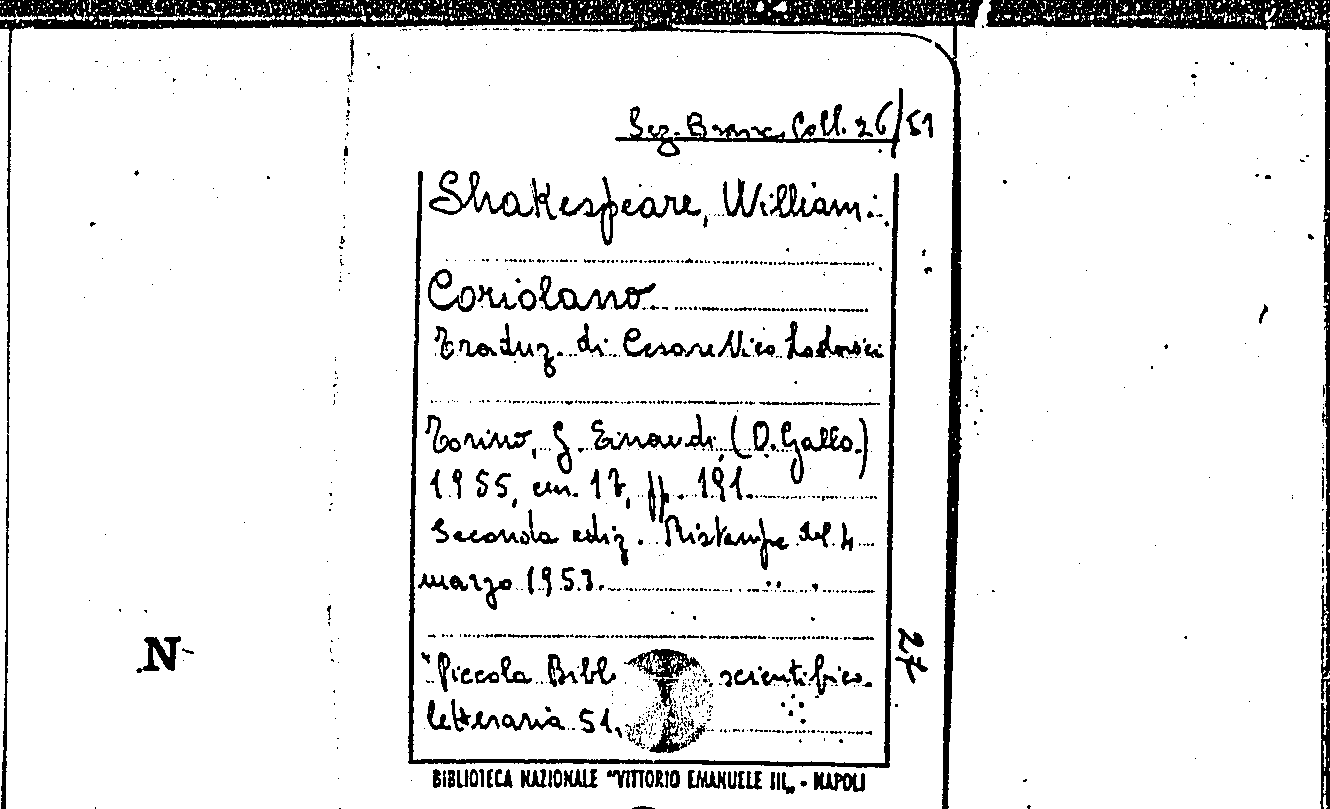 Sez. Branc. Coll. 26/51
Shakespeare, William.
Coriolano
Traduz. di Cesare Vico Lodovici
Torino, G. Einaudi, (O. Gallo.)
1955, cm. 17, pp. 191.
Seconda ediz. Ristampa del 4
marzo 1953.
27
N
"Piccola Bibl. scientifico.
letteraria 51.
BIBLIOTECA NAZIONALE "VITTORIO EMANUELE III„ - NAPOLI